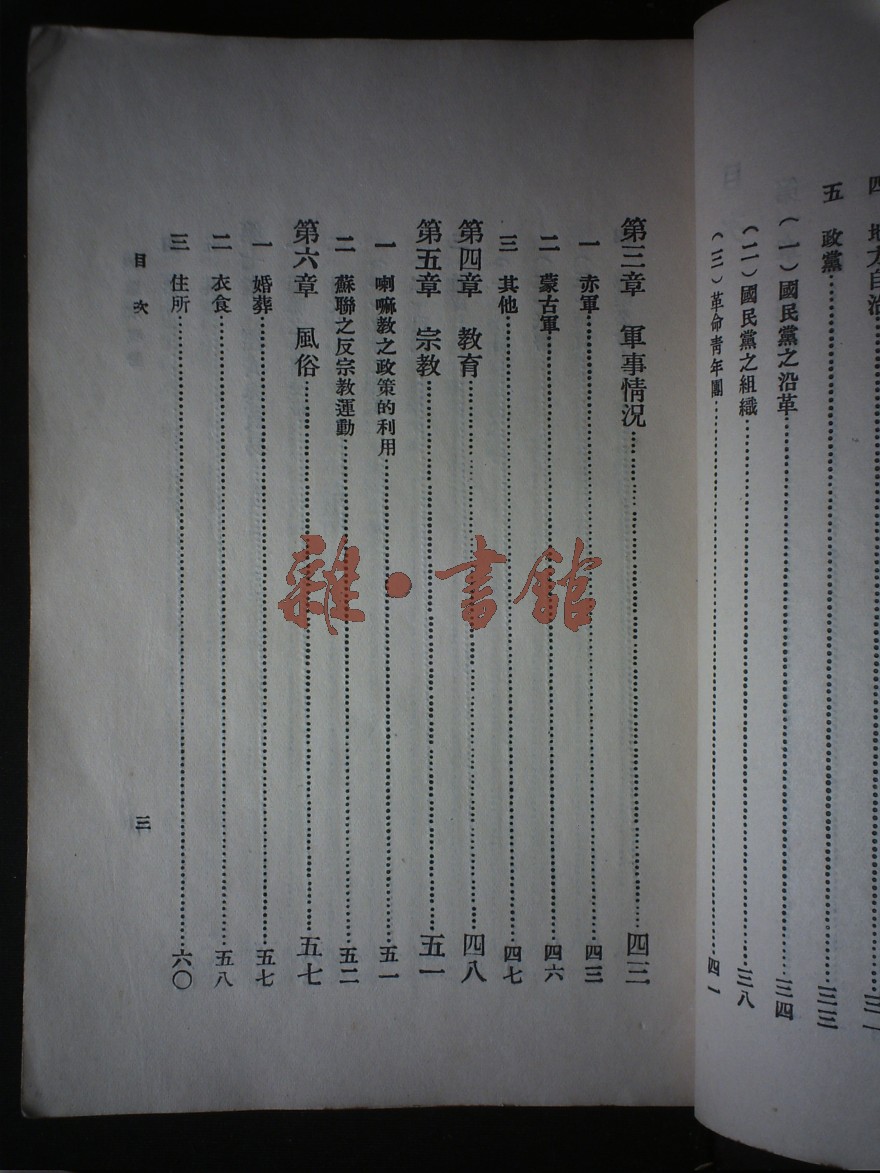 四 地方自治……三一
五 政黨……三三
(一)國民黨之沿革……三四
(二)國民黨之組織……三八
(三)革命青年團……四一
第三章 軍事情況……四三
一 赤軍……四三
二 蒙古軍……四六
三 其他……四七
第四章 教育……四八
第五章 宗教……五一
一 喇嘛教之政策的利用……五一
二 蘇聯之反宗教運動……五二
第六章 風俗……五七
一 婚葬……五七
二 衣食……五八
三 住所……六〇
目次
三
雜·書館